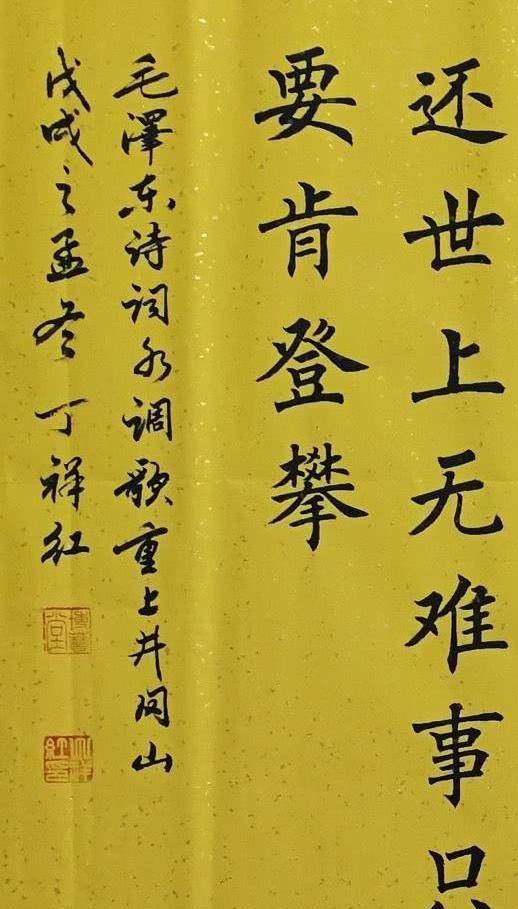 还世上无难事只
要肯登攀
毛澤东诗词水调歌重上井冈山
戊戌之孟冬丁祥红